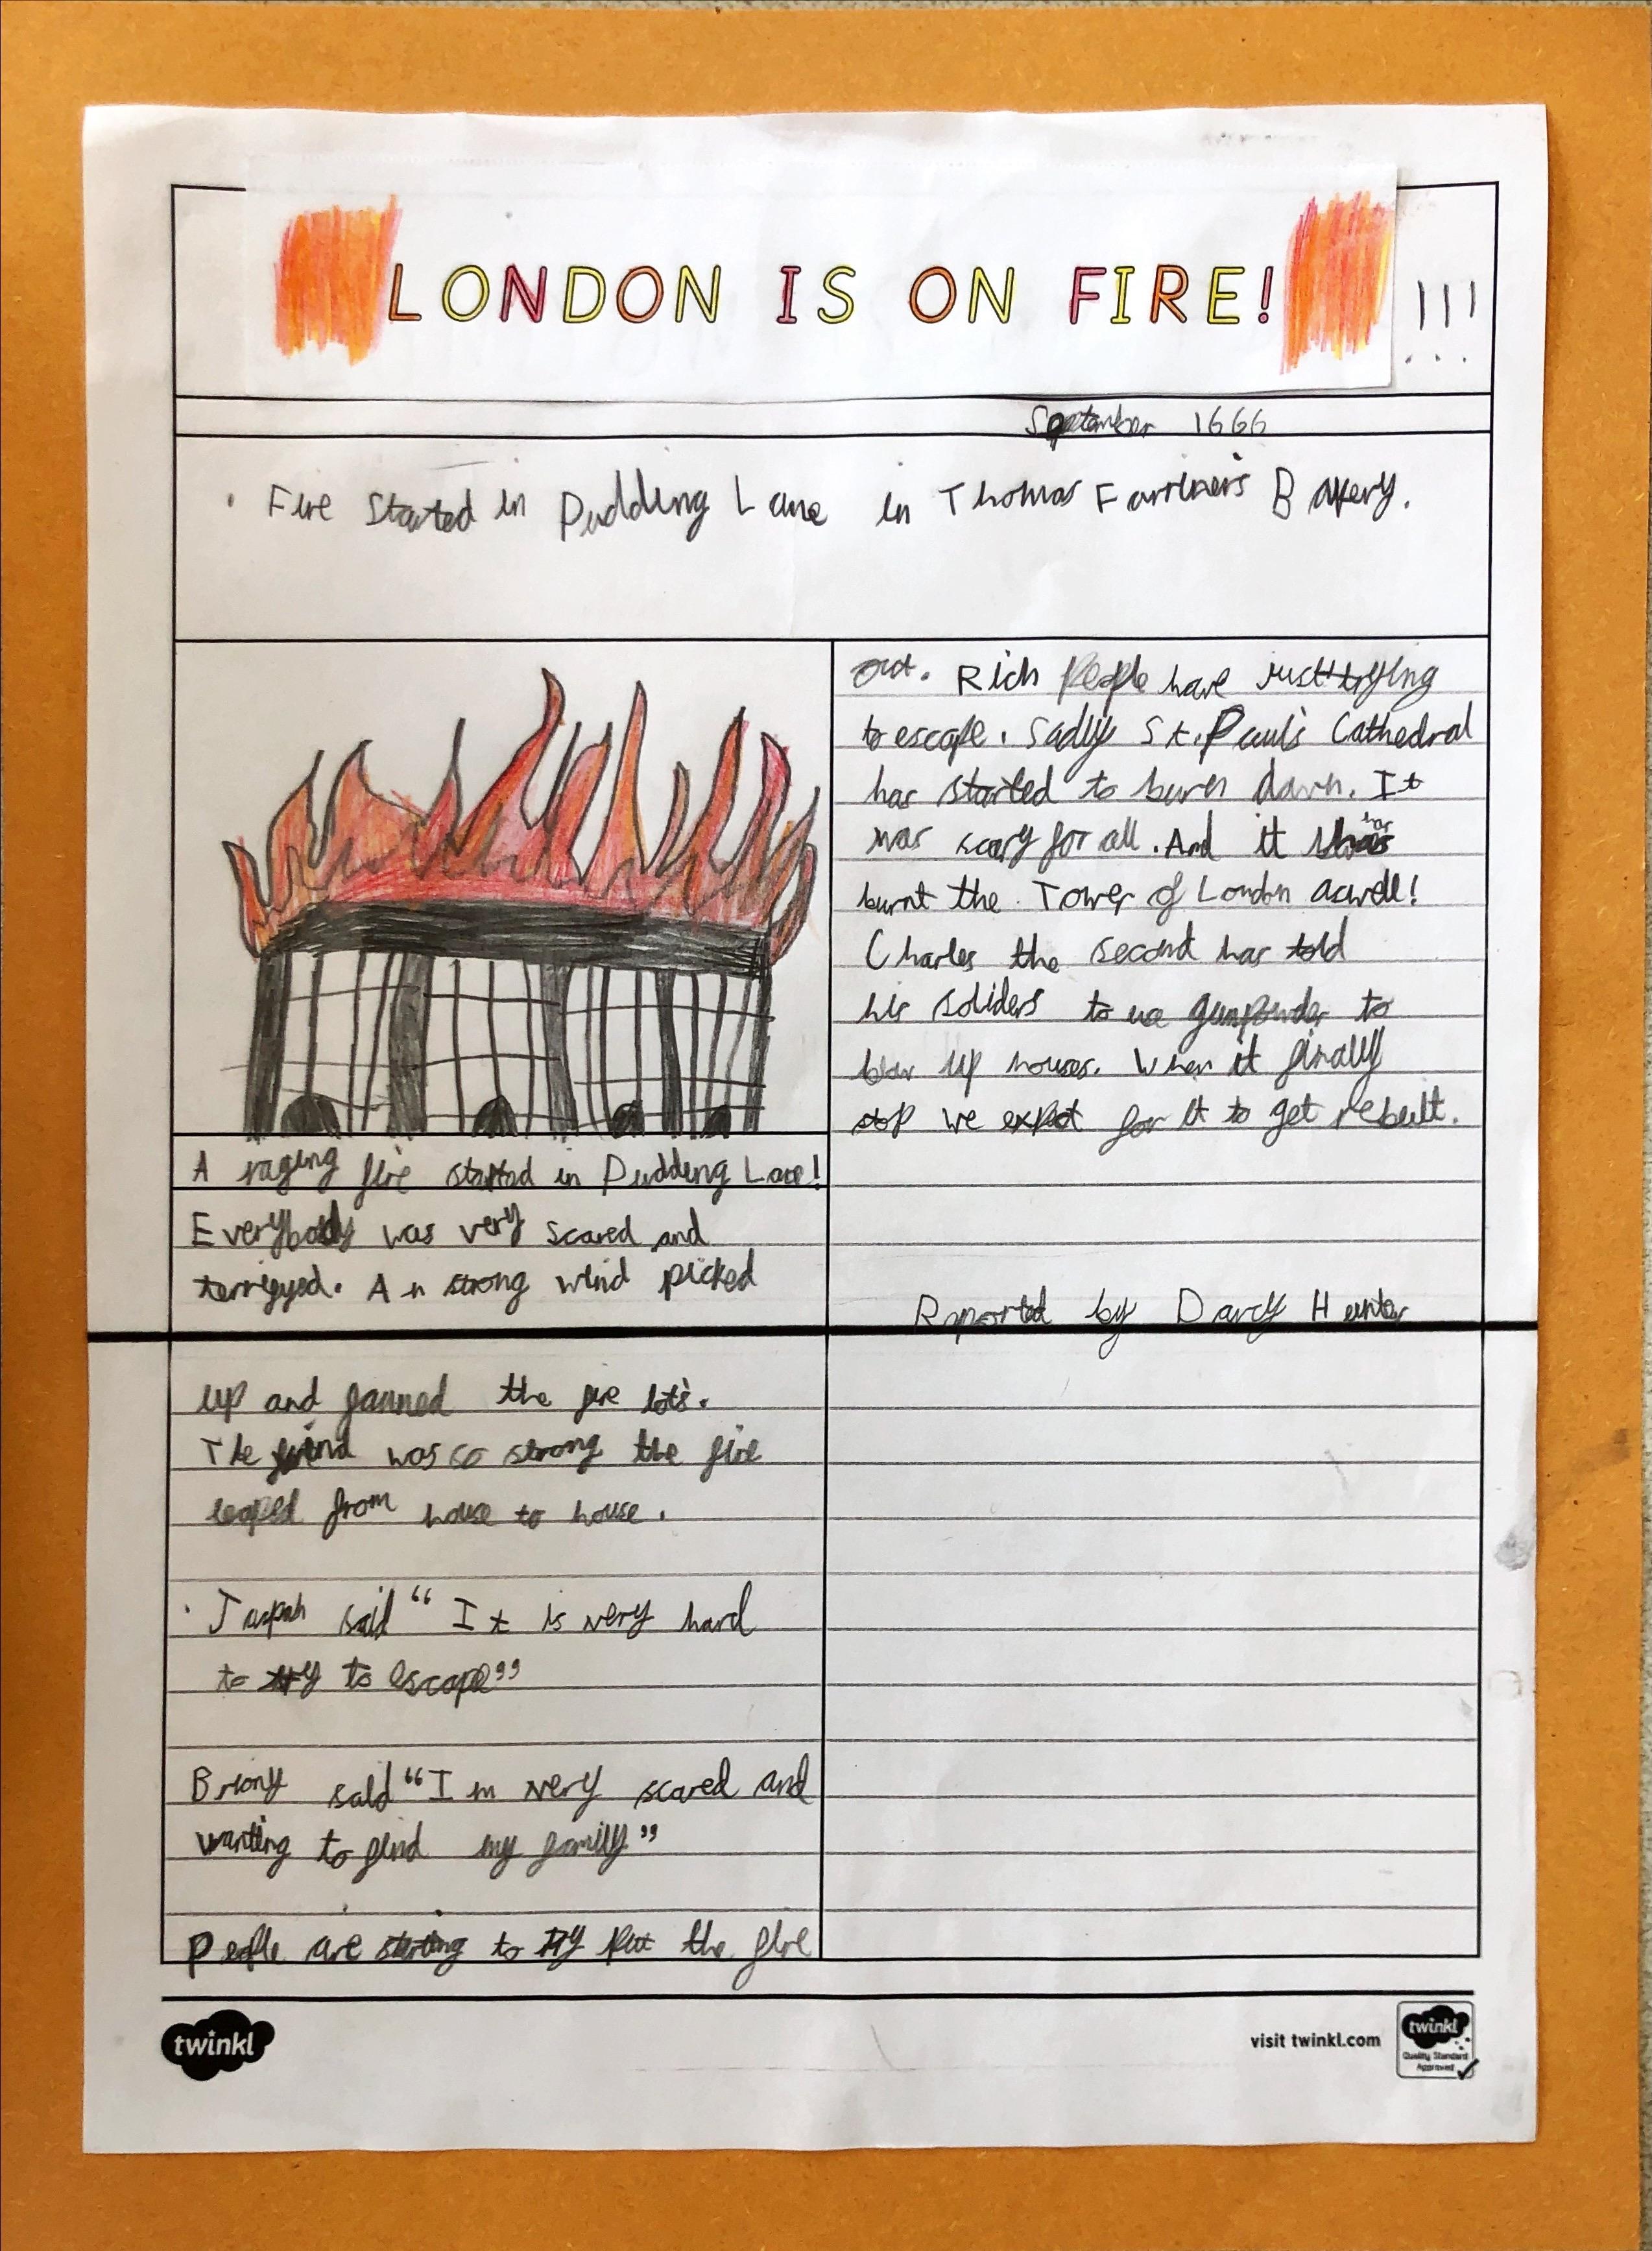 LONDON IS ON FIRE! !!!
September 1666
· Fire started in Pudding Lane in Thomas Farriner's Bakery.
A raging fire started in Pudding Lane!
Everybody was very scared and
terrifyed. An strong wind picked
up and fanned the fire lots.
The wind was so strong the fire
leaped from house to house.
· said “It is very hard
to try to escape”
Briony said “I'm very scared and
wanting to find my family”
People are starting to try put the fire
out. Rich people have just trying
to escape. Sadly St. Paul's Cathedral
has started to burn down. It
was scary for all. And it has
burnt the Tower of London aswell!
Charles the second has told
his soliders to use gunpowder to
blow up houses. When it finally
stop we expect for it to get rebuilt.
Reported by Darcy Hunter
twinkl
visit twinkl.com
twinkl
Quality Standard
Approved